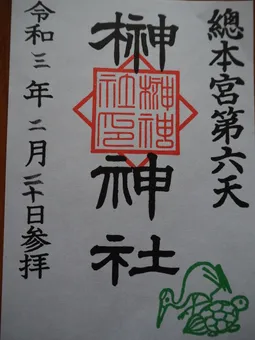 總本宮第六天
榊神社
榊神社印
令和三年二月二十日参拝